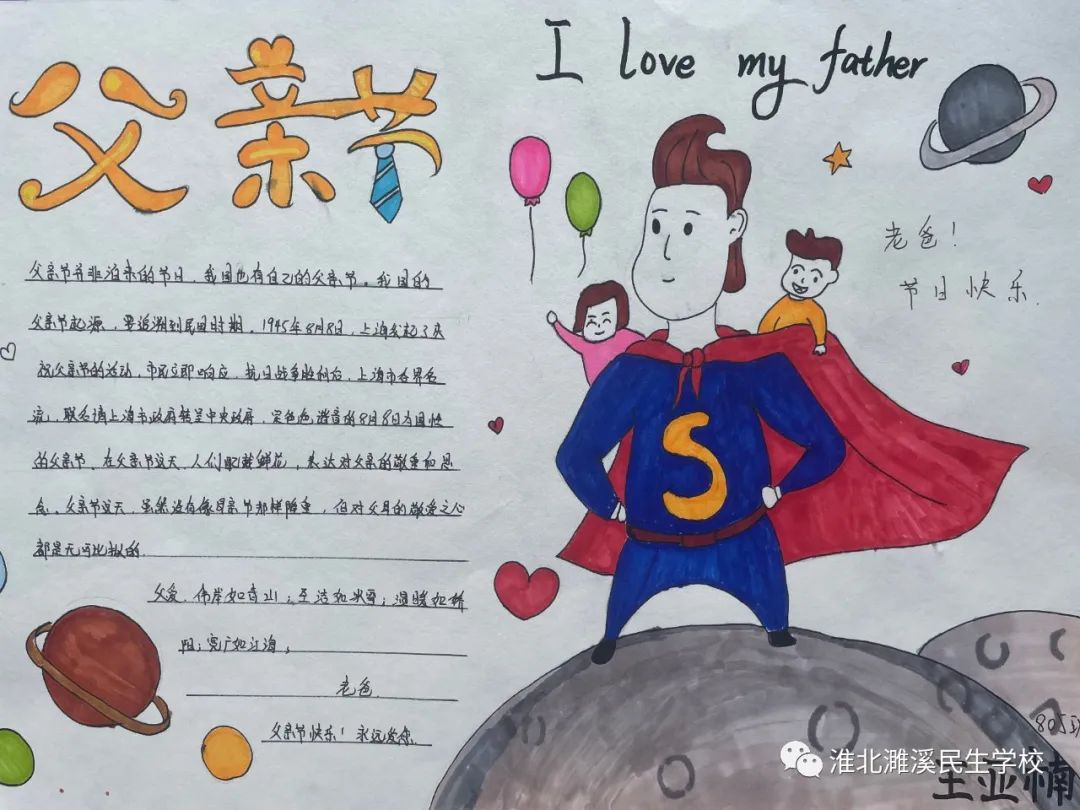 父亲节
I love my father
老爸!
节日快乐.
父亲节并非泊来的节日,我国也有自己的父亲节。我国的
父亲节起源,要追溯到民国时期。1945年8月8日,上海发起了庆
祝父亲节的活动,市民立即响应,抗日战争胜利后,上海市各界名
流,联名请上海市政府转呈中央政府,定爸爸谐音的8月8日为国
的父亲节。在父亲节这天,人们佩带鲜花,表达对父亲的敬重和思
念。父亲节这天,虽然没有像母亲节那样隆重,但对父母的敬爱之心
都是无可比拟的.
父爱,伟岸如青山;圣洁如冰雪;温暖如娇
阳;宽广如江海;
老爸
父亲节快乐!永远爱你.
S
805班
王亚楠
淮北濉溪民生学校